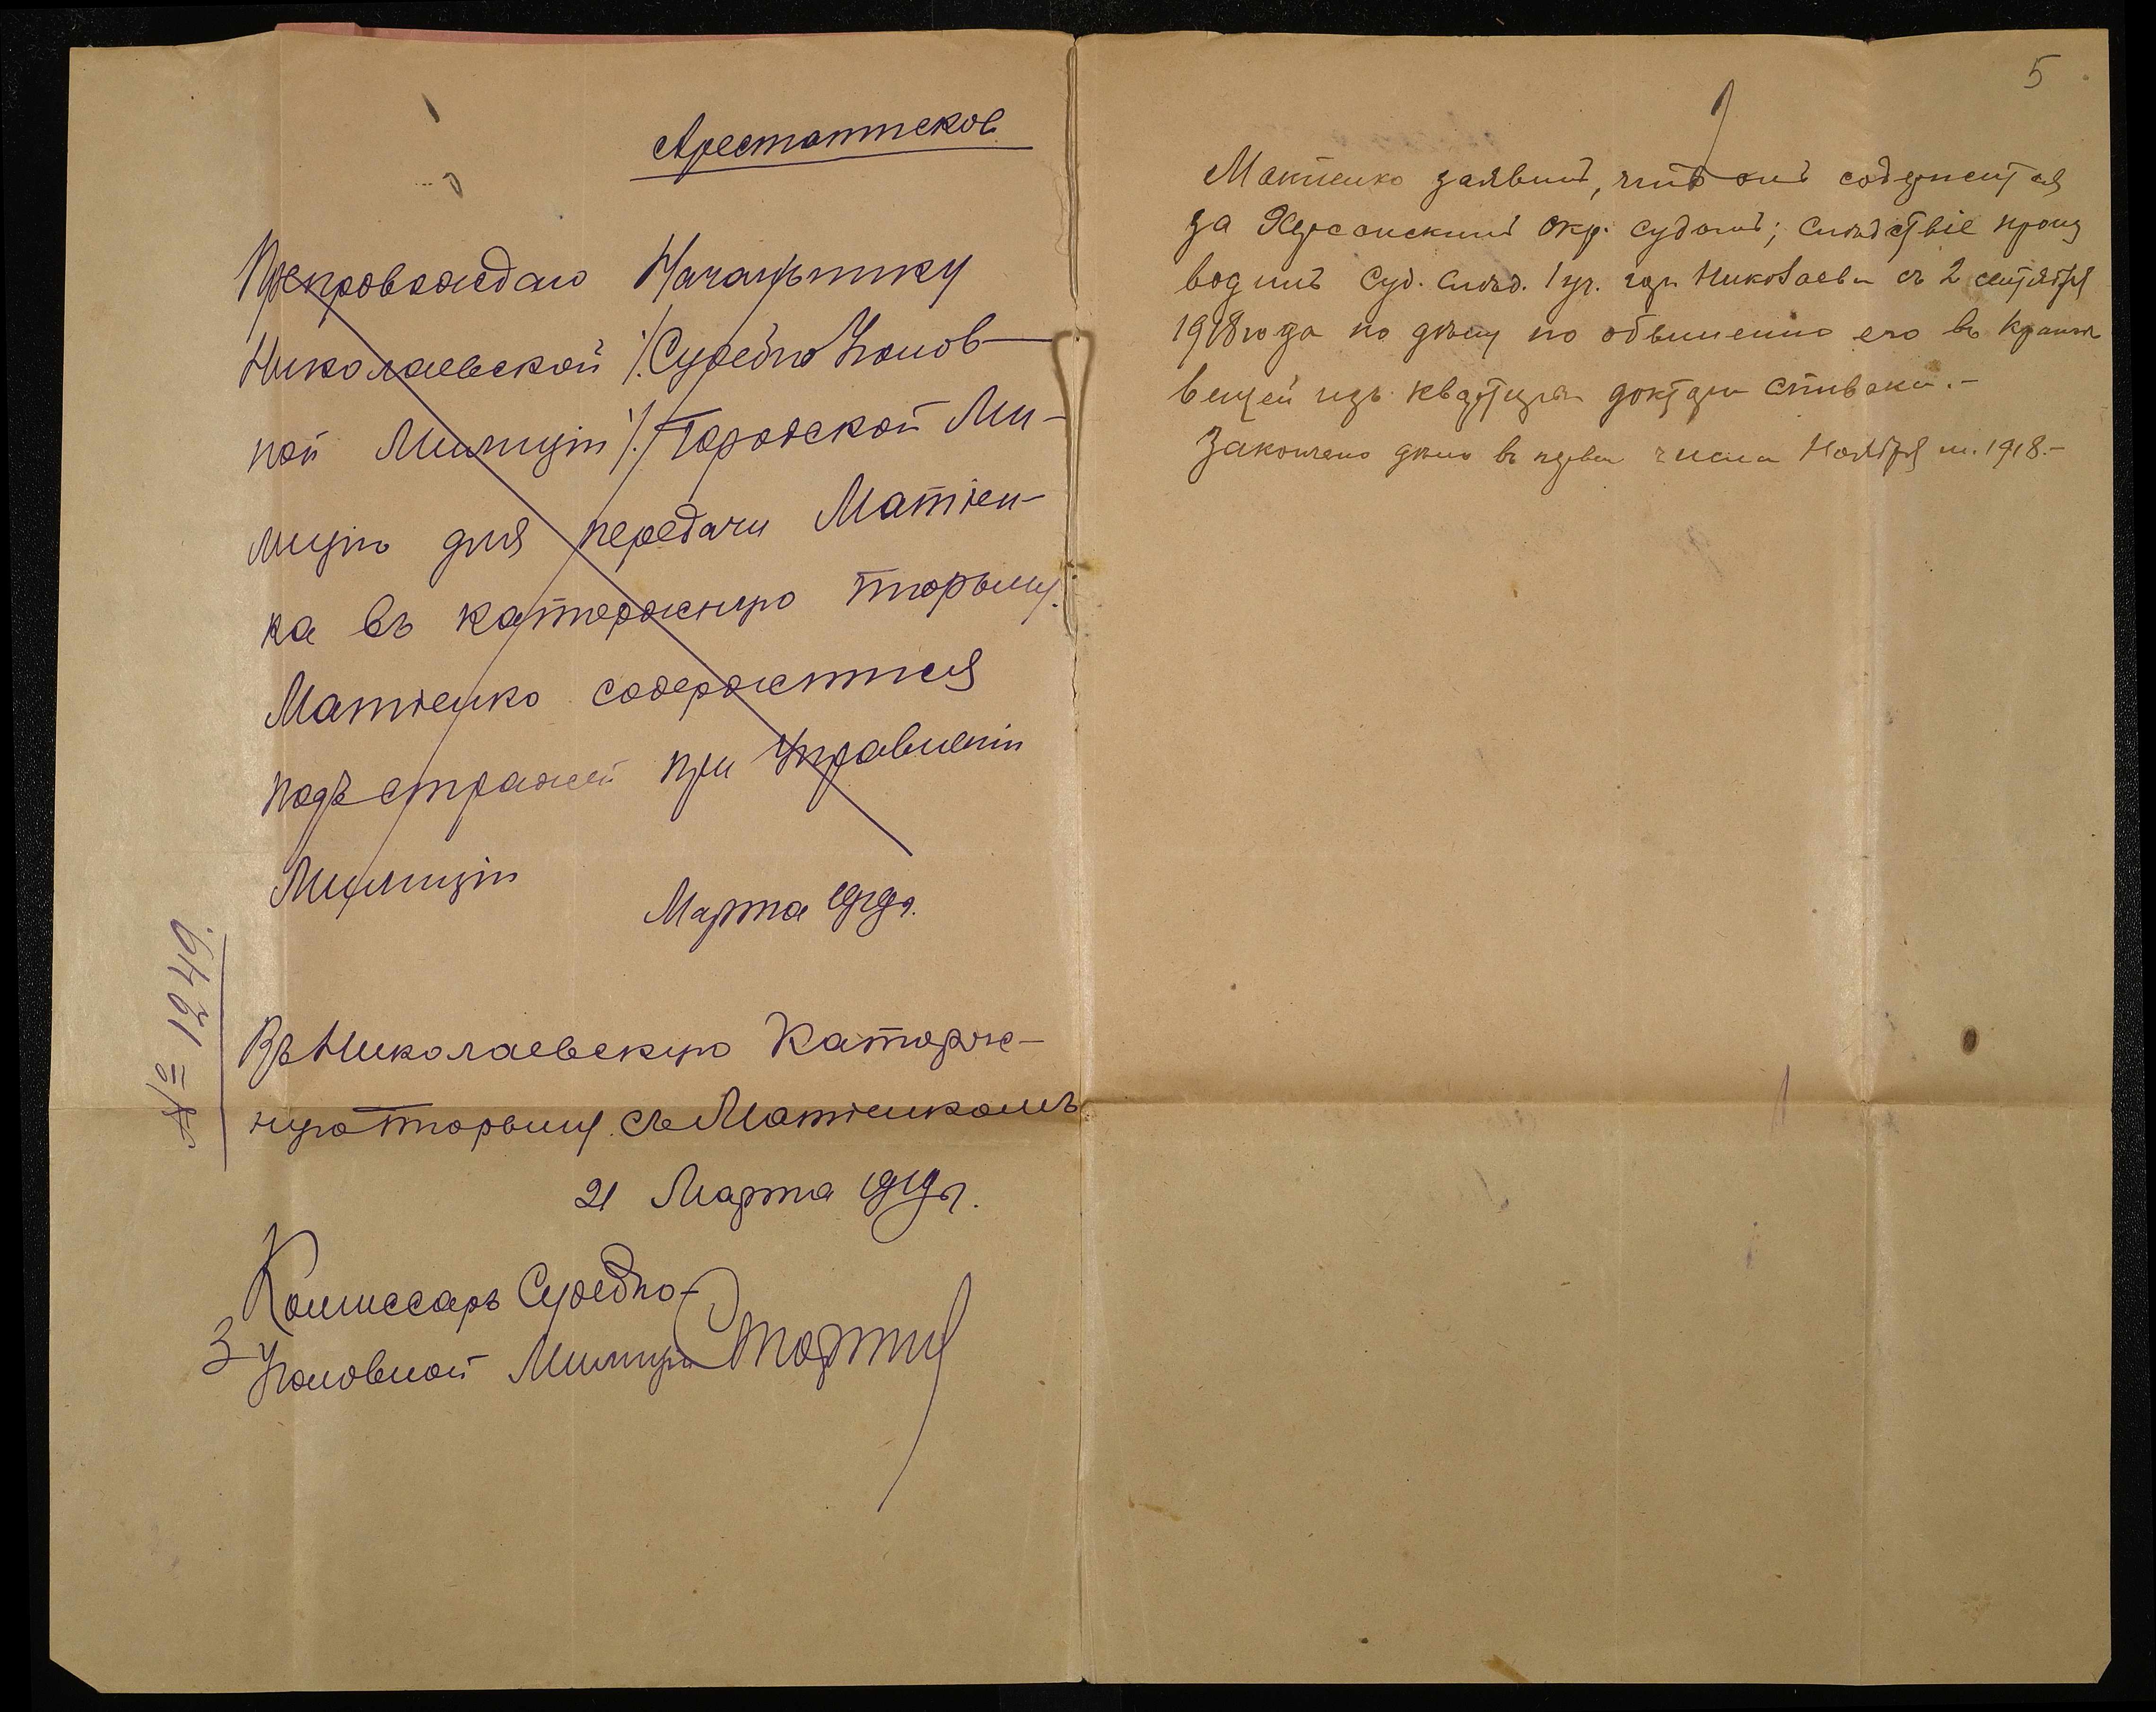 Арестантское
Препровождаю Начальнику
Николаевской /.Судебно Уголов-
ной Милиціи/./ Городской Ми-
лиціи для передачи Матіен-
ка въ каторжную тюрьму.
Матіенко содержится
подъ стражей при Управленіи
Милиціи
Марта 1919 г.
№ 1249.
Въ Николаевскую Каторж-
ную тюрьму съ Матіенкомъ
21 Марта 1919 г.
Комиссаръ Судебно-
Уголовной Милиціи
5
Матіенко заявилъ, что онъ содержится
за Херсонскимъ Окр. Судомъ; Слѣдствіе произ
водилъ Суд. Слѣд. 1 уч. гор. Николаева съ 2 сентября
1918 года по дѣлу по обвиненію его въ кражѣ
вещей изъ квартиры доктора Спивака.-
Закончено дѣло въ первы числа Ноября м. 1918.-